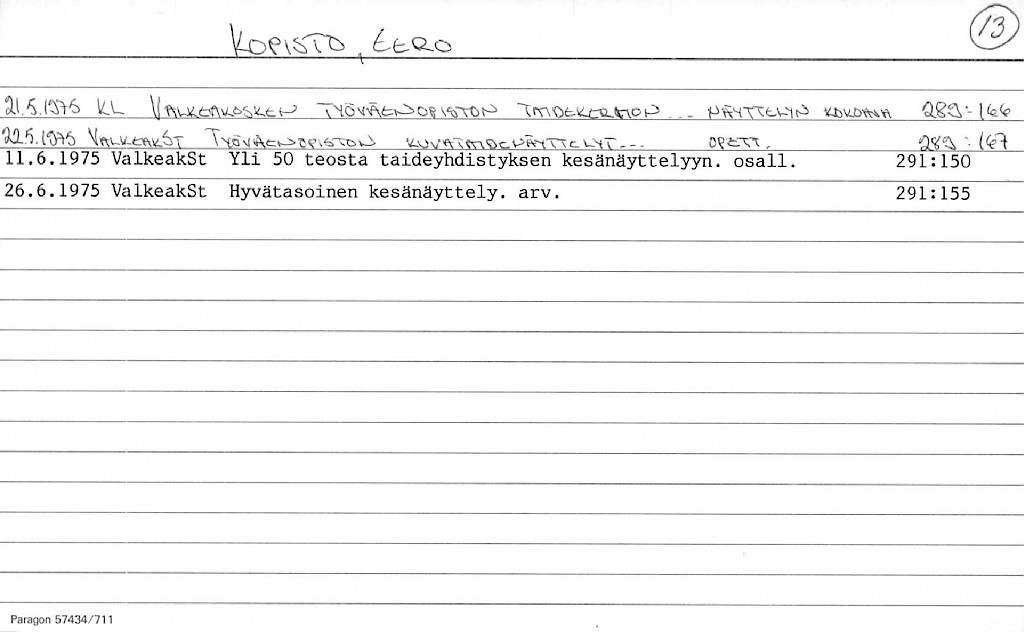 13
KOPISTO, EERO
21.5.1975 KL VALKEAKOSKEN TYÖVÄENOPISTON TAIDEKERHON ... NÄYTTELYN KOKOAVA 289:166
22.5.1975 VALKEAKST TYÖVÄENOPISTON KUVATAIDENÄYTTELYT ... OPETT. 289:167
11.6.1975 ValkeakSt Yli 50 teosta taideyhdistyksen kesänäyttelyyn. osall. 291:150
26.6.1975 ValkeakSt Hyvätasoinen kesänäyttely. arv. 291:155
Paragon 57434/711